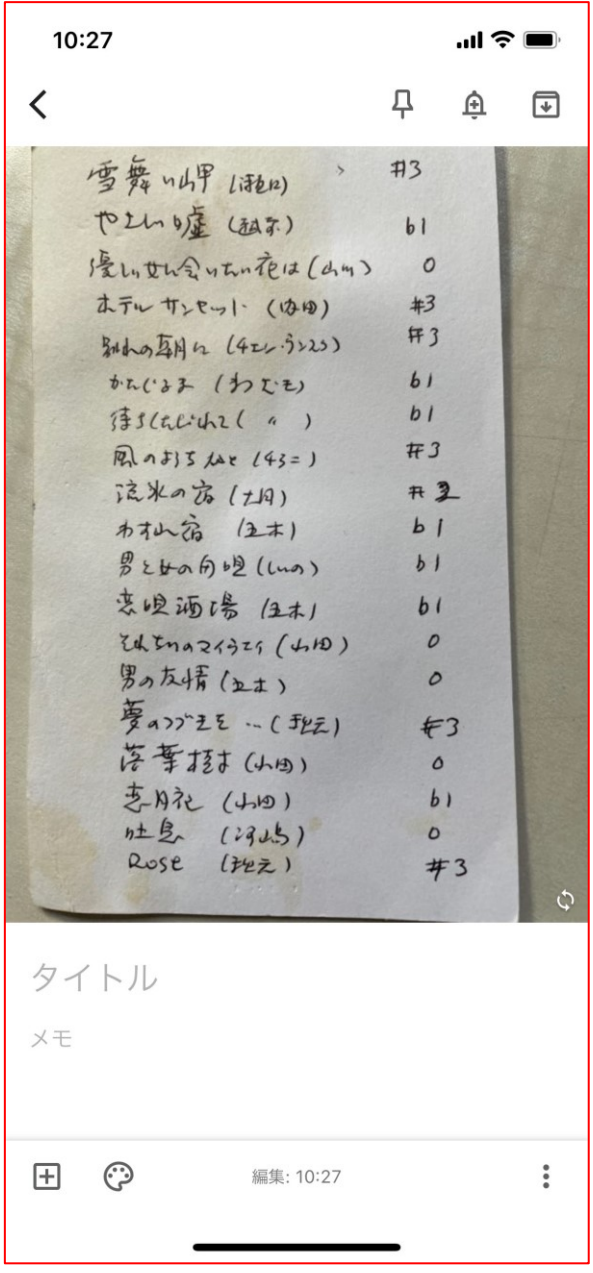 10:27
雪舞い岬 #3
やさしい嘘 b1
優しい女に会いたい花は (山川) 0
ホテルサンセット (内田) #3
別れの朝に (チェン・ランスク) #3
かたぐるま b1
待ちくたびれて ( 〃 ) b1
風のように #3
流氷の宿 #
わすれ宿 (五木) b1
男と女の舟唄 (しいの) b1
恋唄酒場 (五木) b1
それぞれのマイウェイ (山田) 0
男の友情 (五木) 0
夢のつづきを… #3
落葉樹 (山田) 0
恋月花 (山田) b1
吐息 (河嶋) 0
Rose #3
タイトル
メモ
編集: 10:27